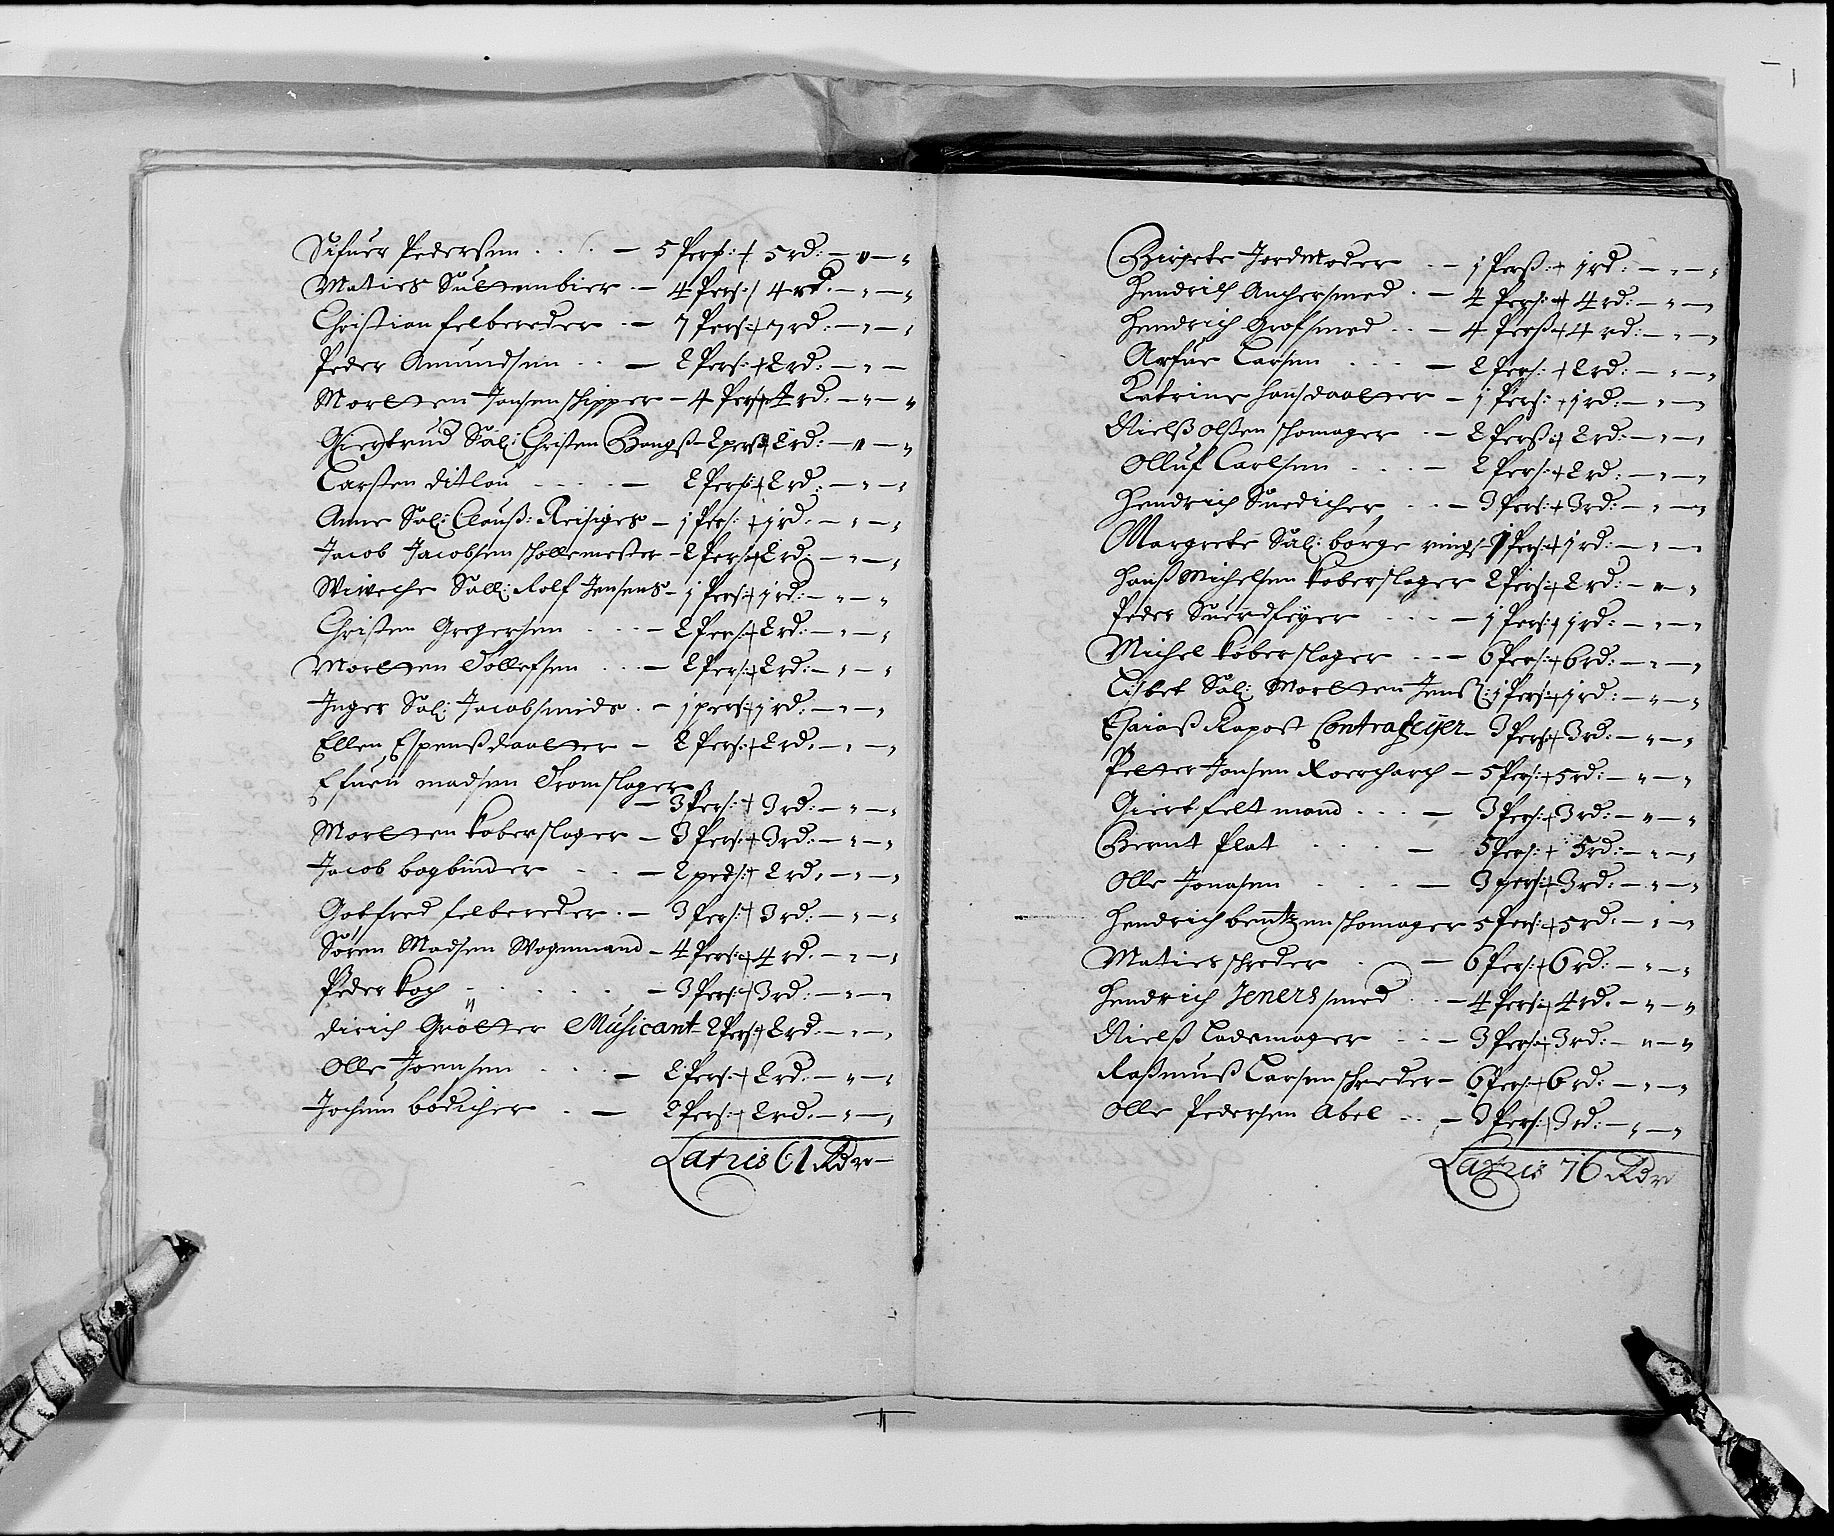 Sifuer Pederssen . . . — 5 Pers: + 5 rd: — " — "
Maties Sultenbier . — 4 Pers: / 4 rd: — " — "
Christian felbereder . — 7 Pers: + 7 rd: — " — "
Peder Amundsen . . — 2 Pers: + 2 rd: — " —
Morten Jansen schipper — 4 Pers + 4 rd: — " — "
Giertrud Sal: Christen Bangs — 2 pers + 2 rd: — " — "
Carsten Ditlou . . . — 2 Pers: + 2 rd: — " — "
Anne Sal: Clauss: Reisiges — 1 Pers: + 1 rd: — " — "
Jacob Jacobsen scholemester — 2 Pers + 2 rd: — " — "
Wiweche Sall: Rolf Jensens — 1 Pers: + 1 rd: — " — "
Christen Gregersen . . . — 2 Pers: + 2 rd: — " — "
Morten Tollefsen . . . — 2 Pers: + 2 rd: — " — "
Inger Sal: Jacobsmeds . — 1 pers: + 1 rd: — " — "
Ellen Espenssdaatter — 2 Pers: + 2 rd. — " — "
Efuen madsen Tromslager
— 3 Pers: + 3 rd: — " — "
Morten koberslager — 3 Pers: + 3 rd: — " — "
Jacob bogbinder . . . — 2 pers: + 2 rd. — " — "
Gotfred felbereder . — 3 Pers: + 3 rd: — " — "
Sören Madsen Wognmand — 4 Pers: + 4 rd. — " — "
Peder koch . . . . . — 3 Pers: + 3 rd: — " — "
Dirich Grölter Musicant — 2 Pers + 2 rd: — " — "
Olle Joensen . . . — 2 Pers: + 2 rd: — " — "
Jochum bödicher . — 2 Pers: + 2 rd: — " — "
Latus 61 Rdr —
Birgete Jordmoder . . — 1 Perss: + 1 rd: — " — "
Hendrich Anchersmed . — 4 Pers: + 4 rd: — " — "
Hendrich Grofsmed . . — 4 Perss + 4 rd: — " — "
Arfue Larsen . . . — 2 Pers: + 2 rd: — " — "
Katrine hansdaatter — 1 Pers: + 1 rd: — " — "
Nielss olssen schomager . — 2 Perss + 2 rd: — " — "
Olluf Carlsen . . . — 2 Pers: + 2 rd: — " — "
Hendrich Snedicher . . — 3 Pers: + 3 rd: — " — "
Margrete Sal: börge rings — 1 Pers: + 1 rd: — " — "
Hanss Michelsen koberslager 2 Pers: + 2 rd: — " — "
Peder Suerdfeyer . . . — 1 Pers: + 1 rd: — " — "
Michel koberslager . . — 6 Pers: + 6 rd: — " — "
Lisbet Sal: Morten Jenss: 1 Pers: + 1 rd: — " — "
Esaiass Rapost Contrafeÿer — 3 Pers: + 3 rd: — " — "
Petter Jansen — 5 Pers: + 5 rd: — " — "
Giert feltmand . . . — 3 Pers: + 3 rd: — " — "
Bernt Plat . . . . — 5 Pers: + 5 rd: — " — "
Olle Jonasen . . . . — 3 pers: + 3 rd: — " — "
Hendrich bentzen schomager 5 Pers: + 5 rd: — " — "
Maties schreder . — 6 Pers: + 6 rd: — " — "
Hendrich Jenerssmed . . — 4 Pers: + 4 rd. — " — "
Nielss Lademager . . — 3 Pers: + 3 rd: — " — "
Rassmuss Larsen schreder — 6 Pers: + 6 rd: — " — "
Olle Pedersen Abel . . — 3 Pers: + 3 rd: — " — "
Latus 76 Rdr